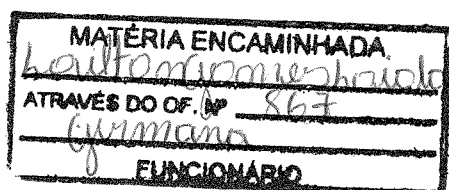 MATÉRIA ENCAMINHADA
ATRAVÉS DO OF. Nº 867
Germano
FUNCIONÁRIO